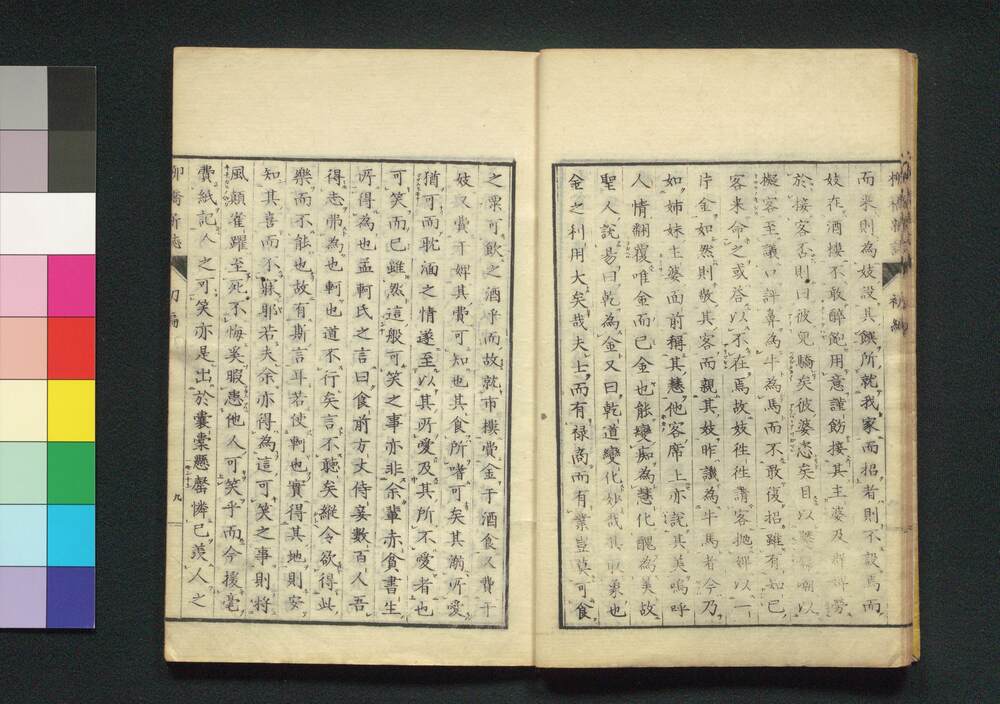 而來則為妓設其饌所就我家而招者則不設焉而
妓在酒樓不敢醉飽用意謹飭接其主婆及群婢勞
於接客否則曰彼兒驕矣彼婆恣矣目以嘲以
擬客至議口評鼻為牛為馬而不敢復招雖有知己
客來命之或答以不在焉故妓往往請客拋婢以一
片金如然則敬其客而親其妓昨譏為牛馬者今乃
如姉妹主婆面前稱其慧他客席上亦說其美嗚呼
人情翻覆唯金而已金也能變痴為慧化醜為美故
聖人說易曰乾為金又曰乾道變化妙哉其取象也
金之利用大矣哉夫上而有祿商而有業豈莫可食
之粟可飲之酒乎而故就市樓賞金于酒食又費于
妓又費于婢其費可知也其食所嗜可矣其溺所愛
猶可而耽湎之情遂至以其所愛及其所不愛者也
可笑而已雖然這般可笑之事亦非余輩赤貧書生
所得為也孟軻氏之言曰食前方丈侍妾數百人吾
得志弗為也軻也道不行矣言不聽矣縱令欲得此
樂而不能也故有斯言耳若使軻也實得其地則安
知其喜而不為耶若夫余亦得為這可笑之事則將
風顛雀躍至死不悔奚暇患他人可笑乎而今援毫
費紙記人之可笑亦是出於囊橐懸罄憐己羨人之
柳橋新誌 初編 九